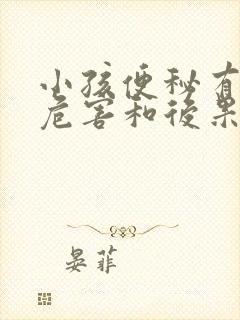 小孩便秘有
危害和後果
晏菲